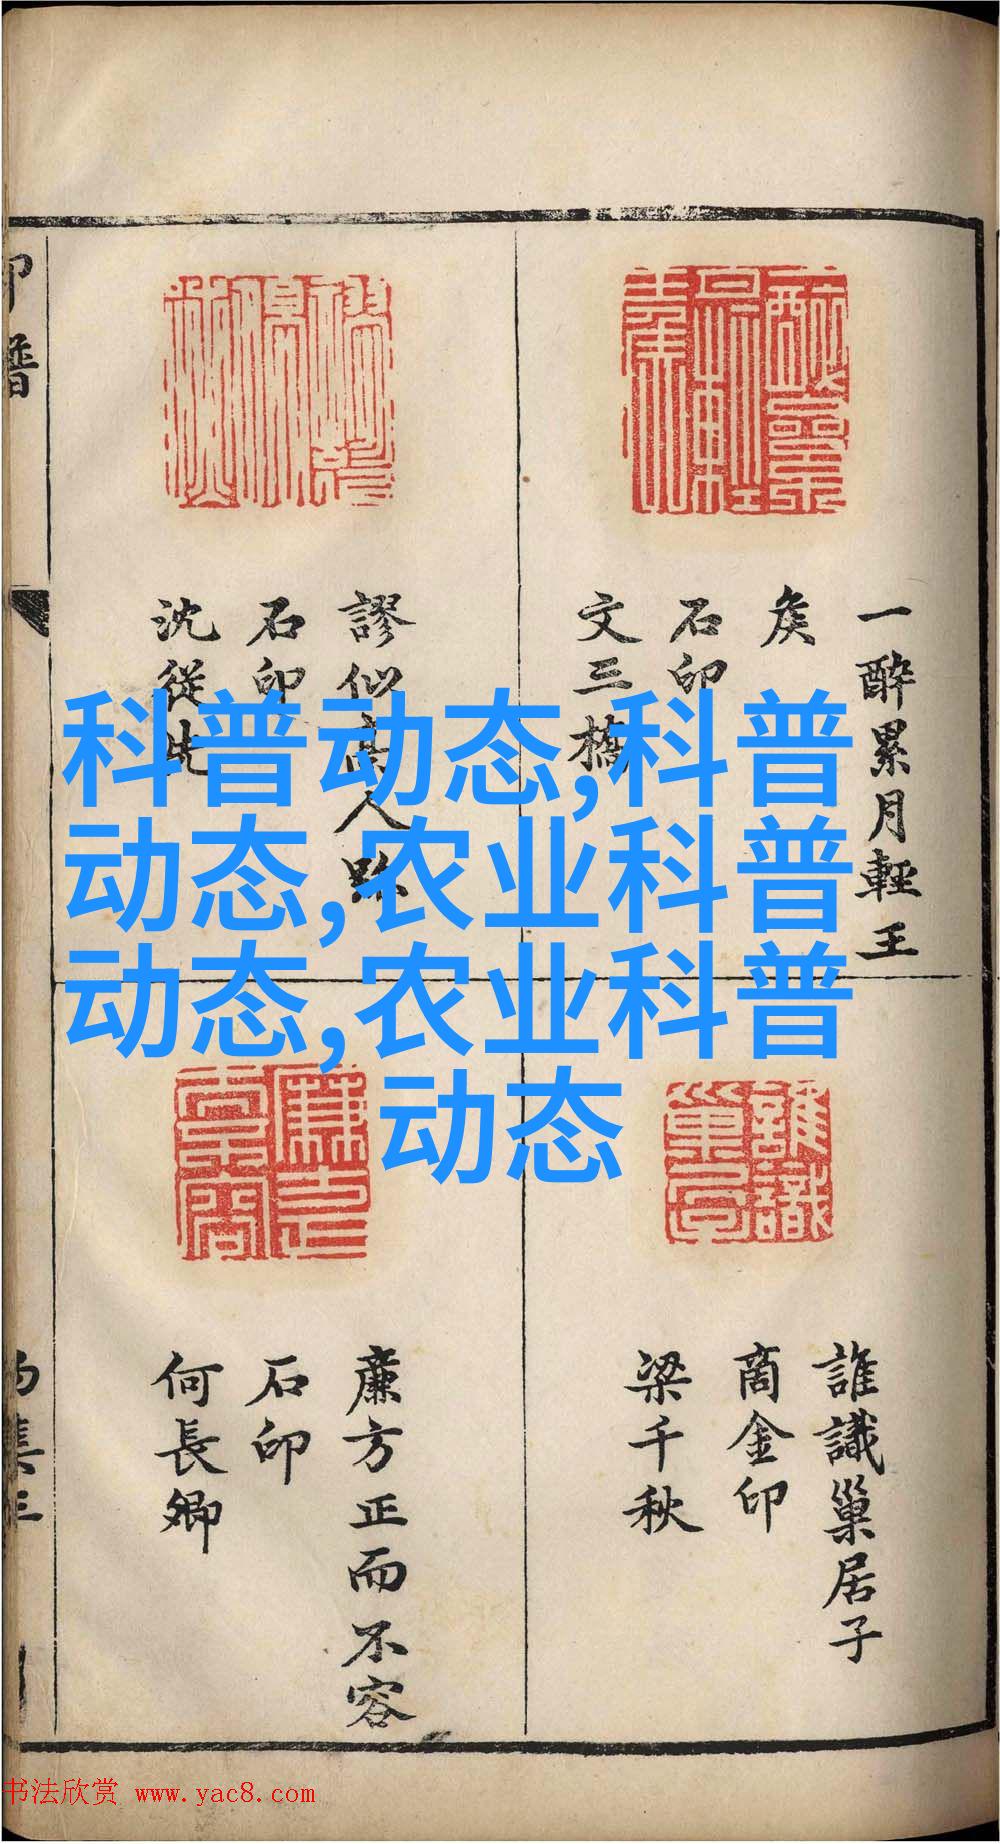 一醉累月輕王
矦
石印
文三橋
謬似高人
石印
沈從先
誰識巢居子
商金印
梁千秋
廉方正而不容
石印
何長卿
印譜
科普动态,科普
动态,农业科普
动态,农业科普
动态
书法欣赏 www.yac8.com